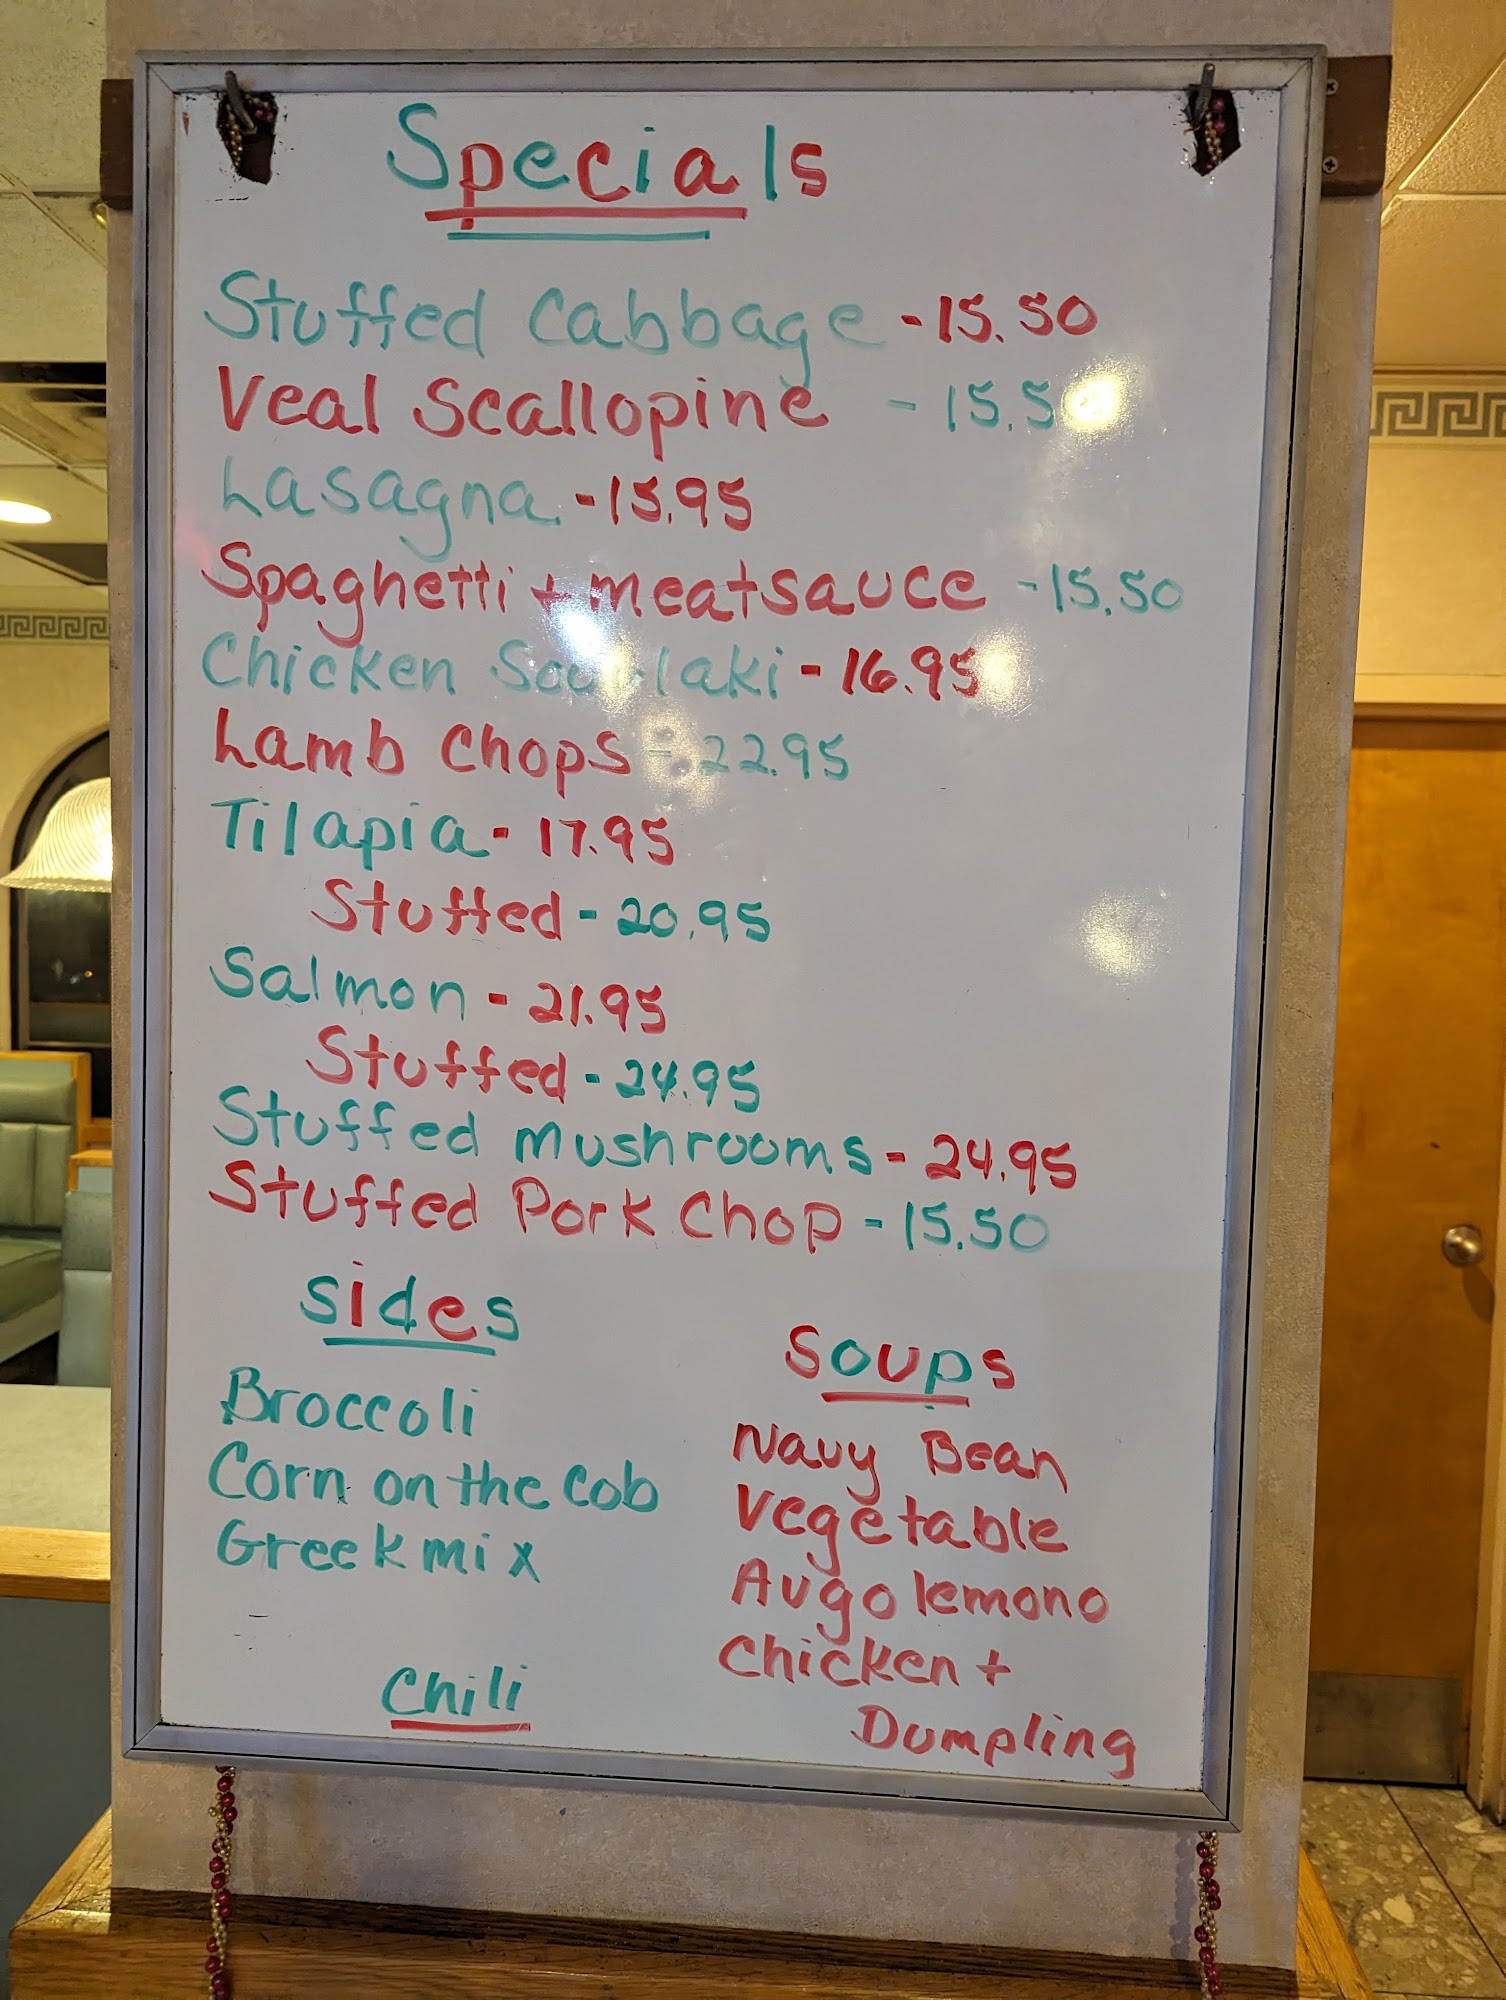 Specials
Stuffed Cabbage - 15.50
Veal Scallopine - 15.5
Lasagna - 15.95
Spaghetti + meatsauce - 15.50
Chicken Souvlaki - 16.95
Lamb Chops - 22.95
Tilapia - 17.95
Stuffed - 20.95
Salmon - 21.95
Stuffed - 24.95
Stuffed mushrooms - 24.95
Stuffed Pork Chop - 15.50
Sides
Broccoli
Corn on the Cob
Greek mix
Chili
Soups
Navy Bean
Vegetable
Avgolemono
Chicken +
Dumpling